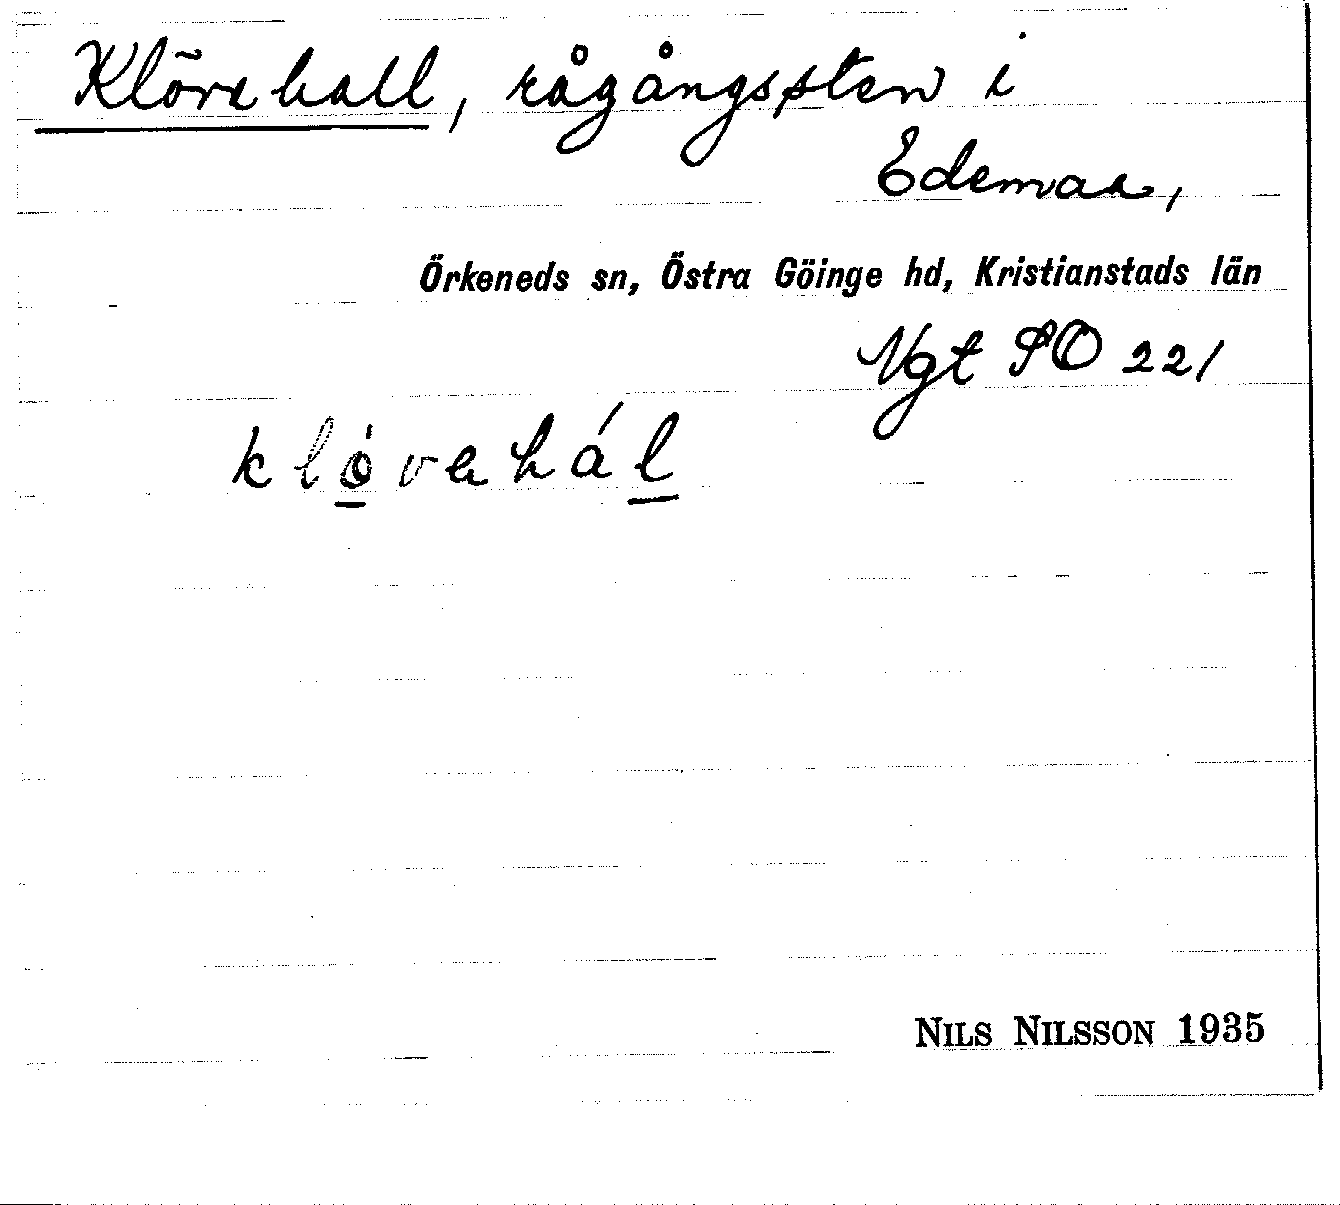 Klövehall, rågångssten i
Edemaa,
Örkeneds sn, Östra Göinge hd, Kristianstads län
Vgt SO 221
klóvehál
NILS NILSSON 1935